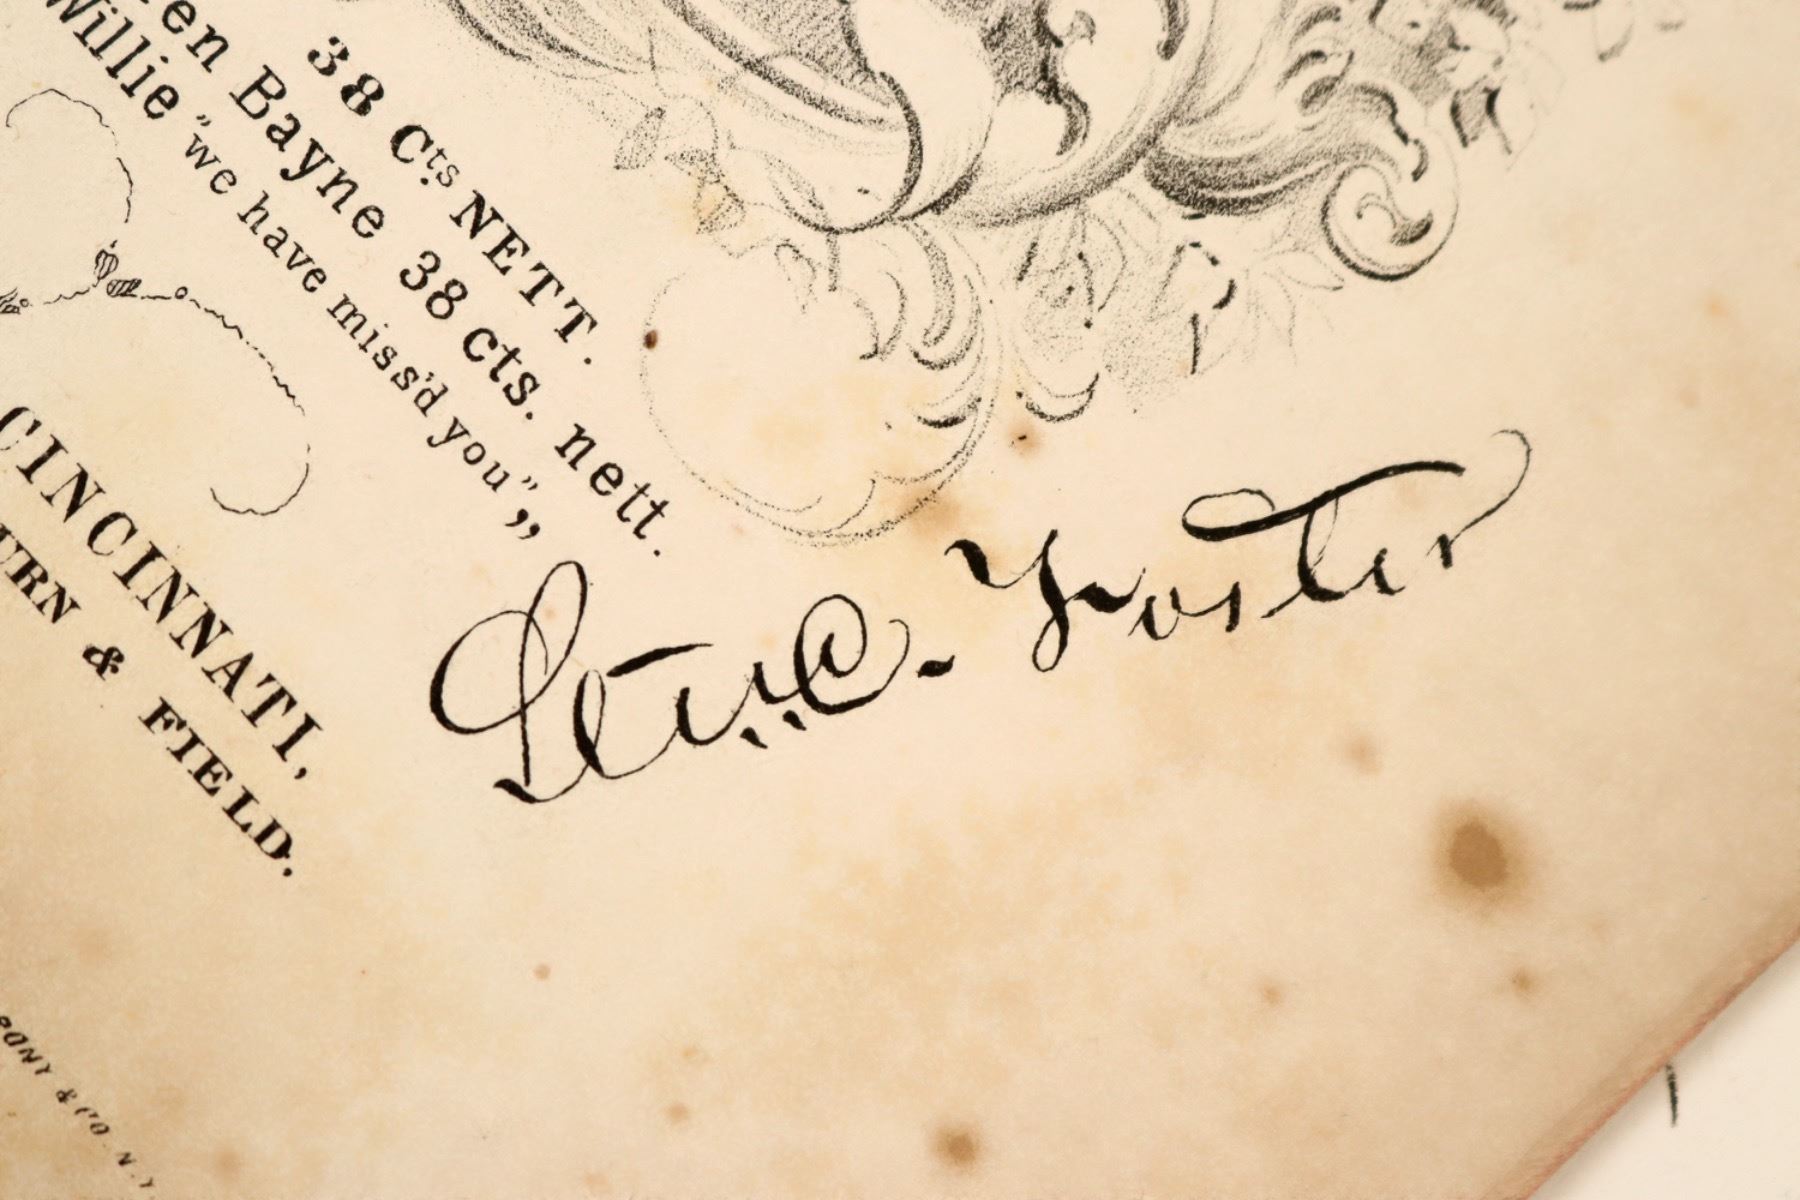 38 Cts NETT.
en Bayne 38 cts. nett.
Willie "we have miss'd you",,
CINCINNATI,
URN & FIELD.
PONY & CO. N.Y.
Ste. C. Foster